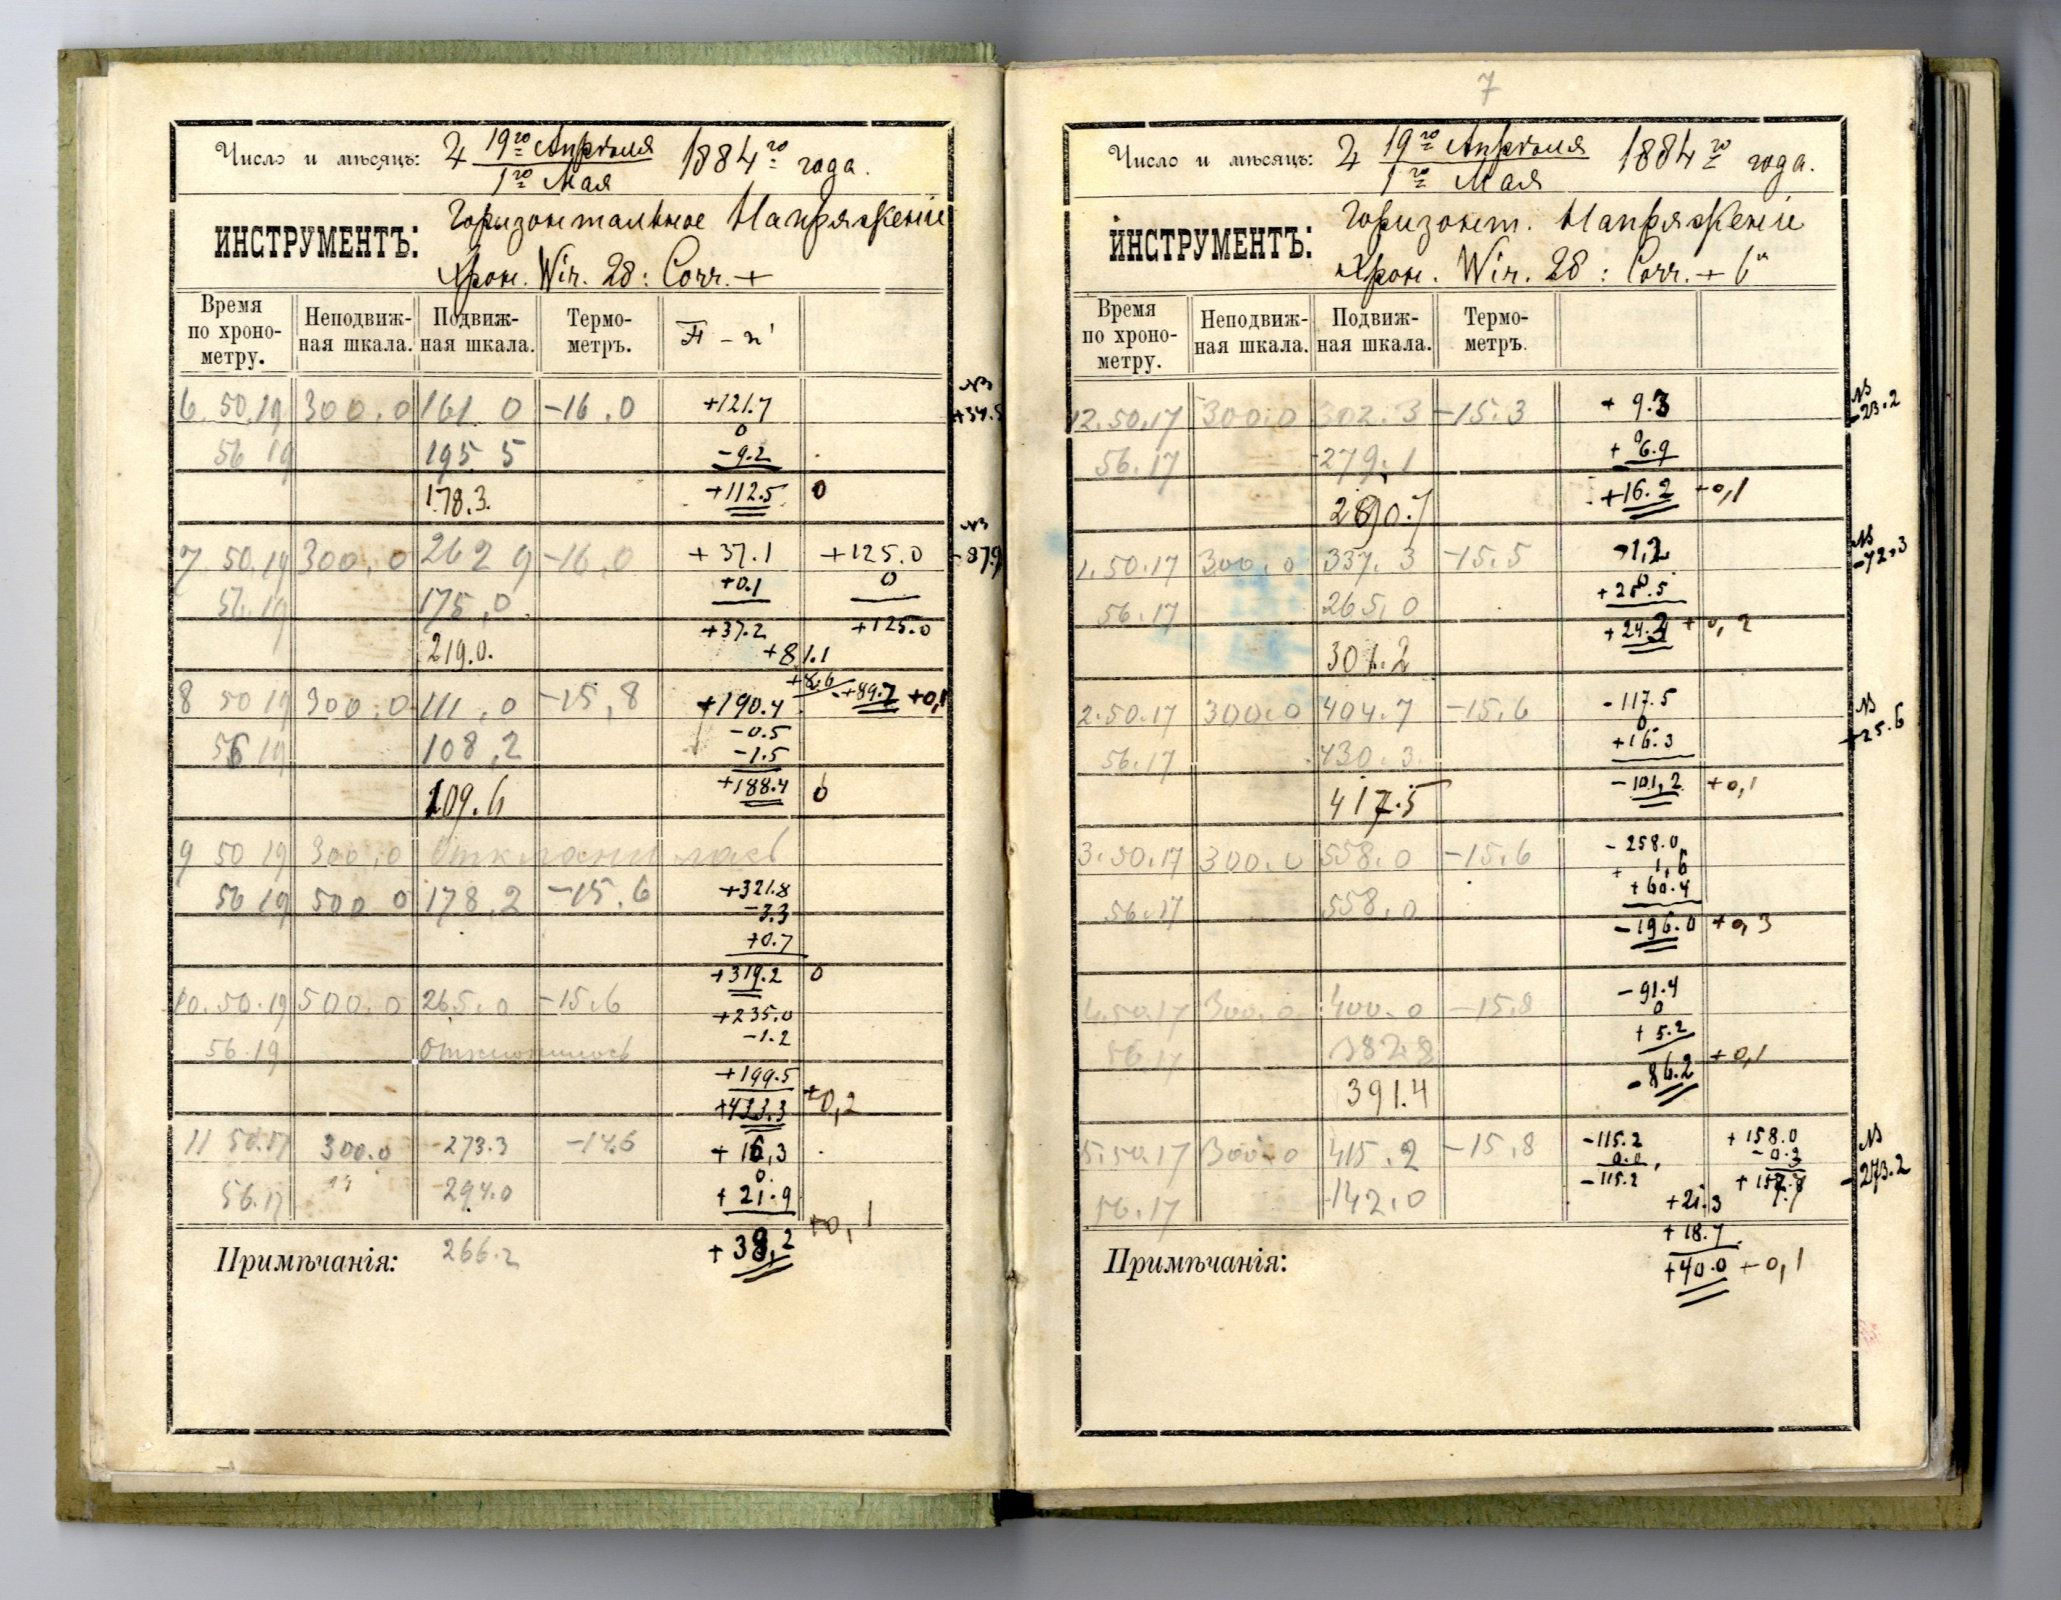 Число и мѣсяцъ: ♃ 19го Апрѣля 1884го года.
1го Мая
ИНСТРУМЕНТЪ: Горизонтальное Напряженіе
Хрон. Wir. 28: Corr. +
Время по хроно-метру. Неподвиж-ная шкала. Подвиж-ная шкала. Термо-метръ. H - n'
NB
6. 50.19 300.0 161 0 -16.0 +121.7
0
56 19 195 5 -9.2
178.3. +112.5 0
NB
7 50.19 300.0 262 9 -16.0 +37.1 +125.0 -87.9
56.19 175,0 +0.1 0
+37.2 +125.0
219.0. +81.1
+8.6
8 50 19 300.0 111,0 -15,8 +190.4 +89.7 +0,1
-0.5
56 19 108,2 -1.5
109.6 +188.4 0
9 50 19 300,0 Отклонилась
56 19 500 0 178,2 -15.6 +321.8
-3.3
+0.7
+319.2 0
10.50.19 500.0 265.0 -15.6 +235.0
56.19 Отклонилось -1.2
+199.5
+433.3 +0,2
11 50.17 300.0 273.3 -14.6 +16,3
0
56.17 " 294.0 +21.9
+0,1
Примѣчанія: 266.2 +38,2
7
Число и мѣсяцъ: ♃ 19го Апрѣля 1884го года.
1го Мая
ИНСТРУМЕНТЪ: Горизонт. Напряженіе
Хрон. Wir. 28: Corr. + 6м
Время по хроно-метру. Неподвиж-ная шкала. Подвиж-ная шкала. Термо-метръ.
NB
12.50.17 300.0 302.3 -15.3 + 9.3 -23.2
0
56.17 279.1 + 6.9
290.7 +16.2 +0,1
NB
1.50.17 300.0 337.3 -15.5 -1,2 -72.3
0
56.17 265,0 +25.5
301.2 +24.2 +0,2
2.50.17 300.0 404.7 -15.6 -117.5 NB
0 +25.6
56.17 430.3 +16.3
417.5 -101,2 +0,1
3.50.17 300.0 558.0 -15.6 -258.0
+ 1,6
56.17 558.0 +60.4
-196.0 +0,3
4.50.17 300.0 400.0 -15,8 -91.4
0
56.17 382.8 + 5.2
391.4 -86.2 +0,1
5.50.17 300.0 415.2 -15,8 -115.2 +158.0 NB
0.0 -0.3
-115.2 +157.7 -273.2
56.17 142.0 +21.3
+18.7
Примѣчанія: +40.0 +0,1